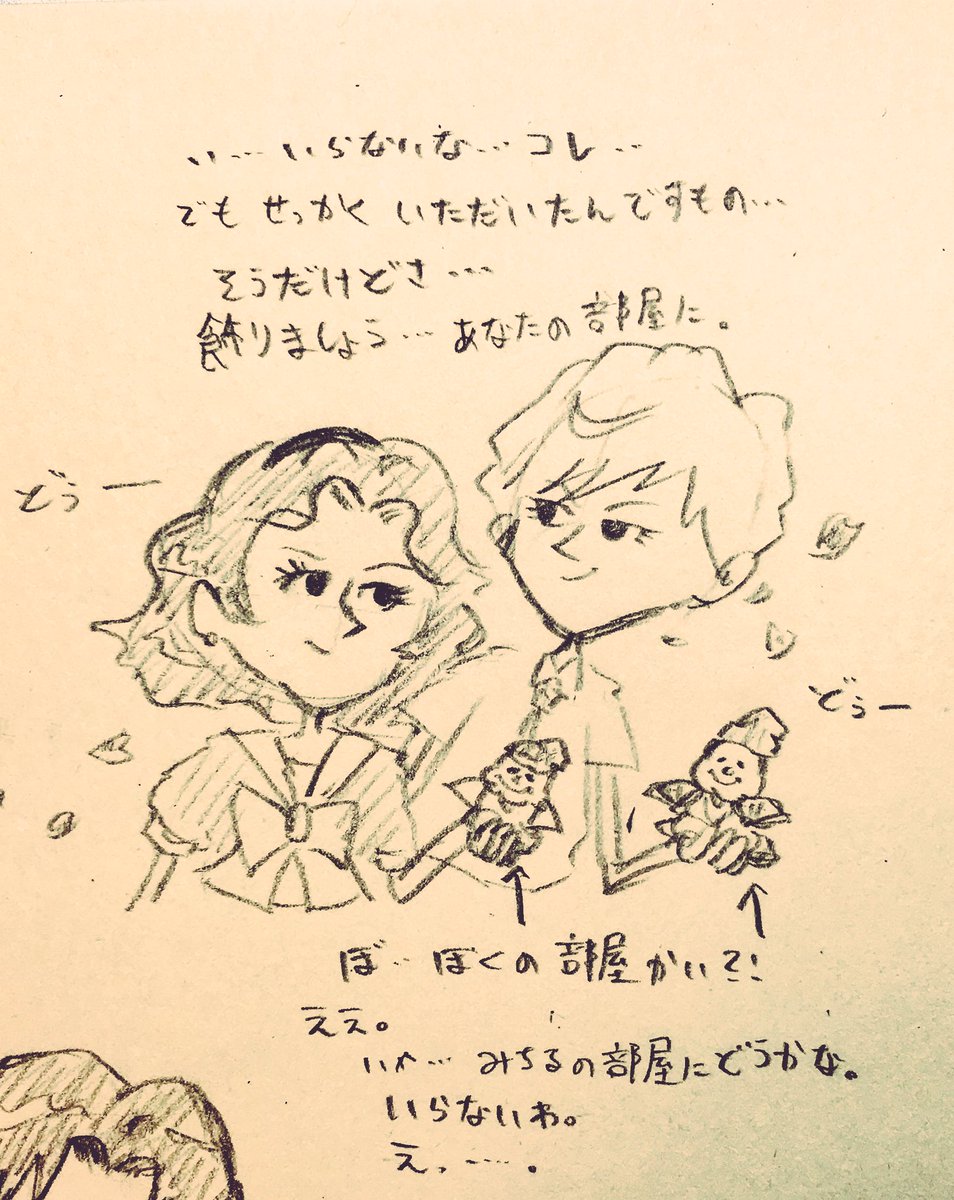 い…いらないな…コレ…
でもせっかくいただいたんですもの…
そうだけどさ…
飾りましょう…あなたの部屋に。
どぅー
どぅー
ぼ…ぼくの部屋かい?!
ええ。
いや…みちるの部屋にどうかな。
いらないわ。
えっ……。